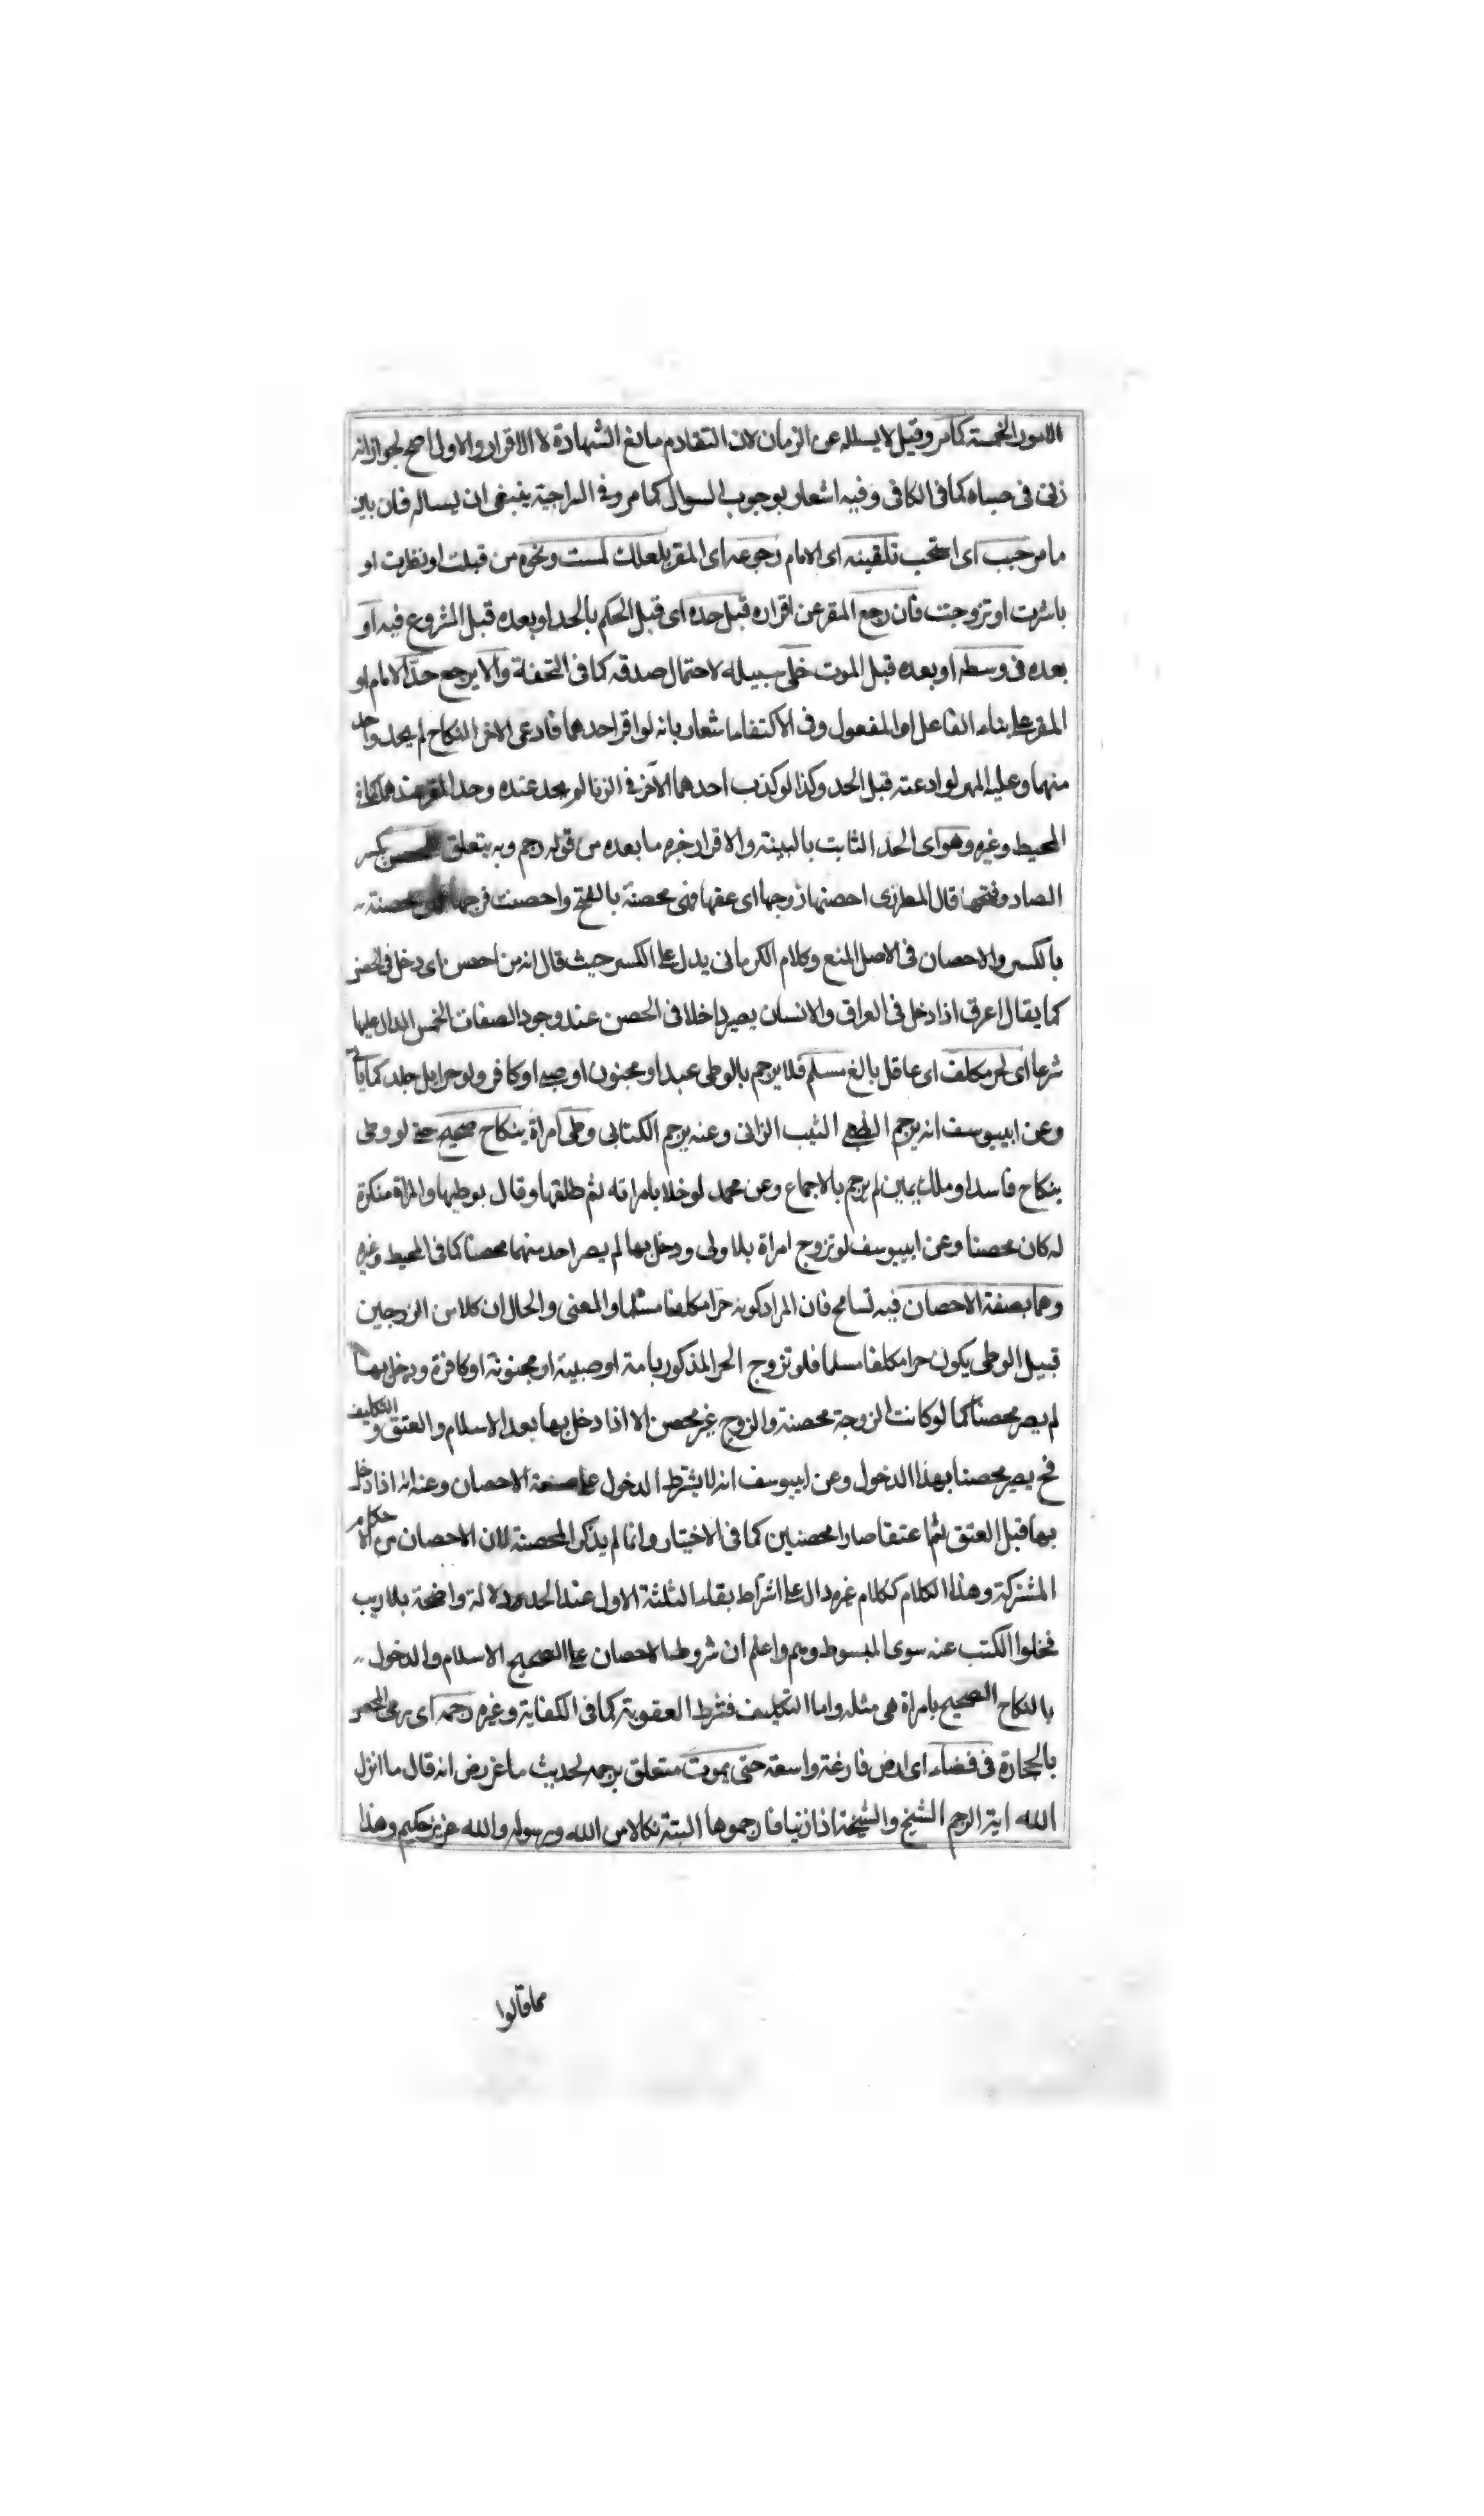 الامور الخمسة كما مر وقيل لا يسئله عن الزمان لان التقادم مانع الشهادة لا الاقرار والاول اصح لجواز انه
زنى فى صباه كما فى الكافى وفيه اشعار بوجوب السوال كما مر وفى السراجية ينبغى ان يساله فان بين
ما مر حبب اى استحب تلقينه اى الامام رجوعه اى المقر بلعلك لمست ونحوه من قبلت او نظرت او
باشرت او تزوجت فان رجع المقر عن اقراره قبل حده اى قبل الحكم بالحد او بعده قبل الشروع فيه او
بعده فى وسطه او بعده قبل الموت خلى سبيله لاحتمال صدقه كما فى التحفة والا يرجع حد الامام او
المقر على بناء الفاعل او المفعول وفى الاكتفاء اشعار بانه لو اقر احدهما فادعى الاخر النكاح لم يحد واحد
منهما وعليه المهر لو ادعته قبل الحد وكذا لو كذب احدهما الآخر فى الزنا لم يحد عنده وحد المقر عندهما كما فى
المحيط وغيره وهو اى الحد الثابت بالبينة والاقرار خبره ما بعده من قوله رجم وبه يتعلق للمحصن بكسر
الصاد وفتحها قال المطرزى احصنها زوجها اى عفها فهى محصنة بالفتح واحصنت فرجها فهى محصنة
بالكسر والاحصان فى الاصل المنع وكلام الكرمانى يدل على الكسر حيث قال انه من احصن اى دخل فى الحصن
كما يقال اعرق اذا دخل فى العراق والانسان يصير داخلا فى الحصن عند وجود الصفات الخمس الدال عليها
شرعا اى لحر مكلف اى عاقل بالغ مسلم فلا يرجم بالوطى عبد او مجنون او صبى او كافر ولو حرا بل جلد كما ياتى
وعن ابيوسف انه يرجم الثيب الزانى وعنه يرجم الكتابى وطى امراة بنكاح صحيح حتى لو وطى
بنكاح فاسد او ملك يمين لم يرجم بالاجماع وعن محمد لو خلا بامراته ثم طلقها وقال بوطيها والمراة منكرة
له كان محصنا وعن ابيوسف لو تزوج امراة بلا ولى ودخل بها لم يصر احد منهما محصنا كما فى المحيط وغيره
وهما بصفة الاحصان فيه تسامح فان المراد كونه حرا مكلفا مسلما والمعنى والحال ان كلا من الزوجين
قبيل الوطى يكون حرا مكلفا مسلما فلو تزوج الحر المذكور بامة او صبية او مجنونة او كافرة ودخل بها
لم يصر محصنا كما لو كانت الزوجة محصنة والزوج غير محصن الا اذا دخل بها بعد الاسلام والعتق والتكليف
فح يصير محصنا بهذا الدخول وعن ابيوسف انه لا يشترط الدخول على صفة الاحصان وعنه انه اذا دخل
بها قبل العتق ثم اعتقا صارا محصنين كما فى الاختيار وانما لم يذكر المحصنة لان الاحصان من الاحكام
المشتركة وهذا الكلام ككلام غيره دال على اشتراط بقاء الثلثة الاول عند الحد دلالة واضحة بلا ريب
فخلوا الكتب عنه سوى المبسوط وهم واعلم ان شروط الاحصان على الصحيح الاسلام والدخول
بالنكاح الصحيح بامراة هى مثله واما التكليف فشرط العقوبة كما فى الكفاية وغيره رجمه اى رمى المحصن
بالحجارة فى فضاء اى ارض فارغة واسعة حتى يموت متعلق برجمه لحديث ما عز رض انه قال ما انزل
الله اية الرجم الشيخ والشيخة اذا زنيا فارجموهما البتة نكالا من الله ورسوله والله عزيز حكيم وهذا
مما قالوا